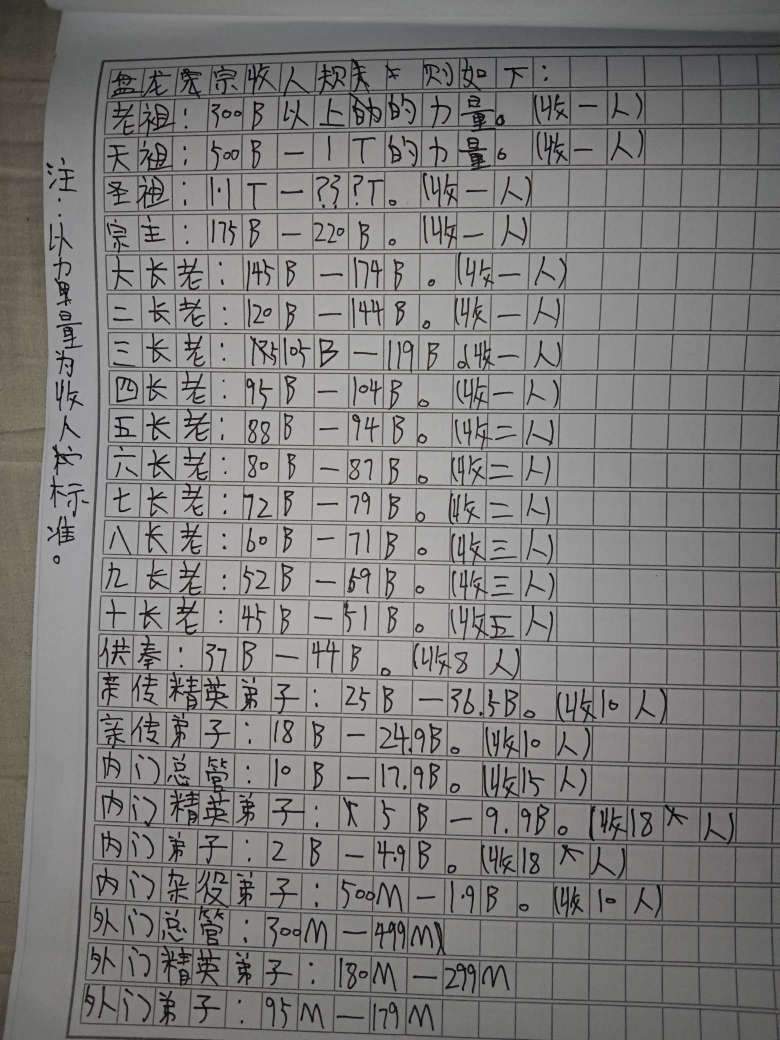 盘龙宗收人规则如下：
老祖：300B以上的的力量。（收一人）
天祖：500B—1T的力量。（收一人）
圣祖：1.1T—???T。（收一人）
宗主：175B—220B。（收一人）
大长老：145B—174B。（收一人）
二长老：120B—144B。（收一人）
三长老：105B—119B。（收一人）
四长老：95B—104B。（收一人）
五长老：88B—94B。（收二人）
六长老：80B—87B。（收二人）
七长老：72B—79B。（收二人）
八长老：60B—71B。（收三人）
九长老：52B—59B。（收三人）
十长老：45B—51B。（收五人）
供奉：37B—44B。（收8人）
亲传精英弟子：25B—36.5B。（收10人）
亲传弟子：18B—24.9B。（收10人）
内门总管：10B—17.9B。（收15人）
内门精英弟子：5B—9.9B。（收18人）
内门弟子：2B—4.9B。（收18人）
内门杂役弟子：500M—1.9B。（收10人）
外门总管：300M—499M）
外门精英弟子：180M—299M
外门弟子：95M—179M
注：以力量为收人标准。